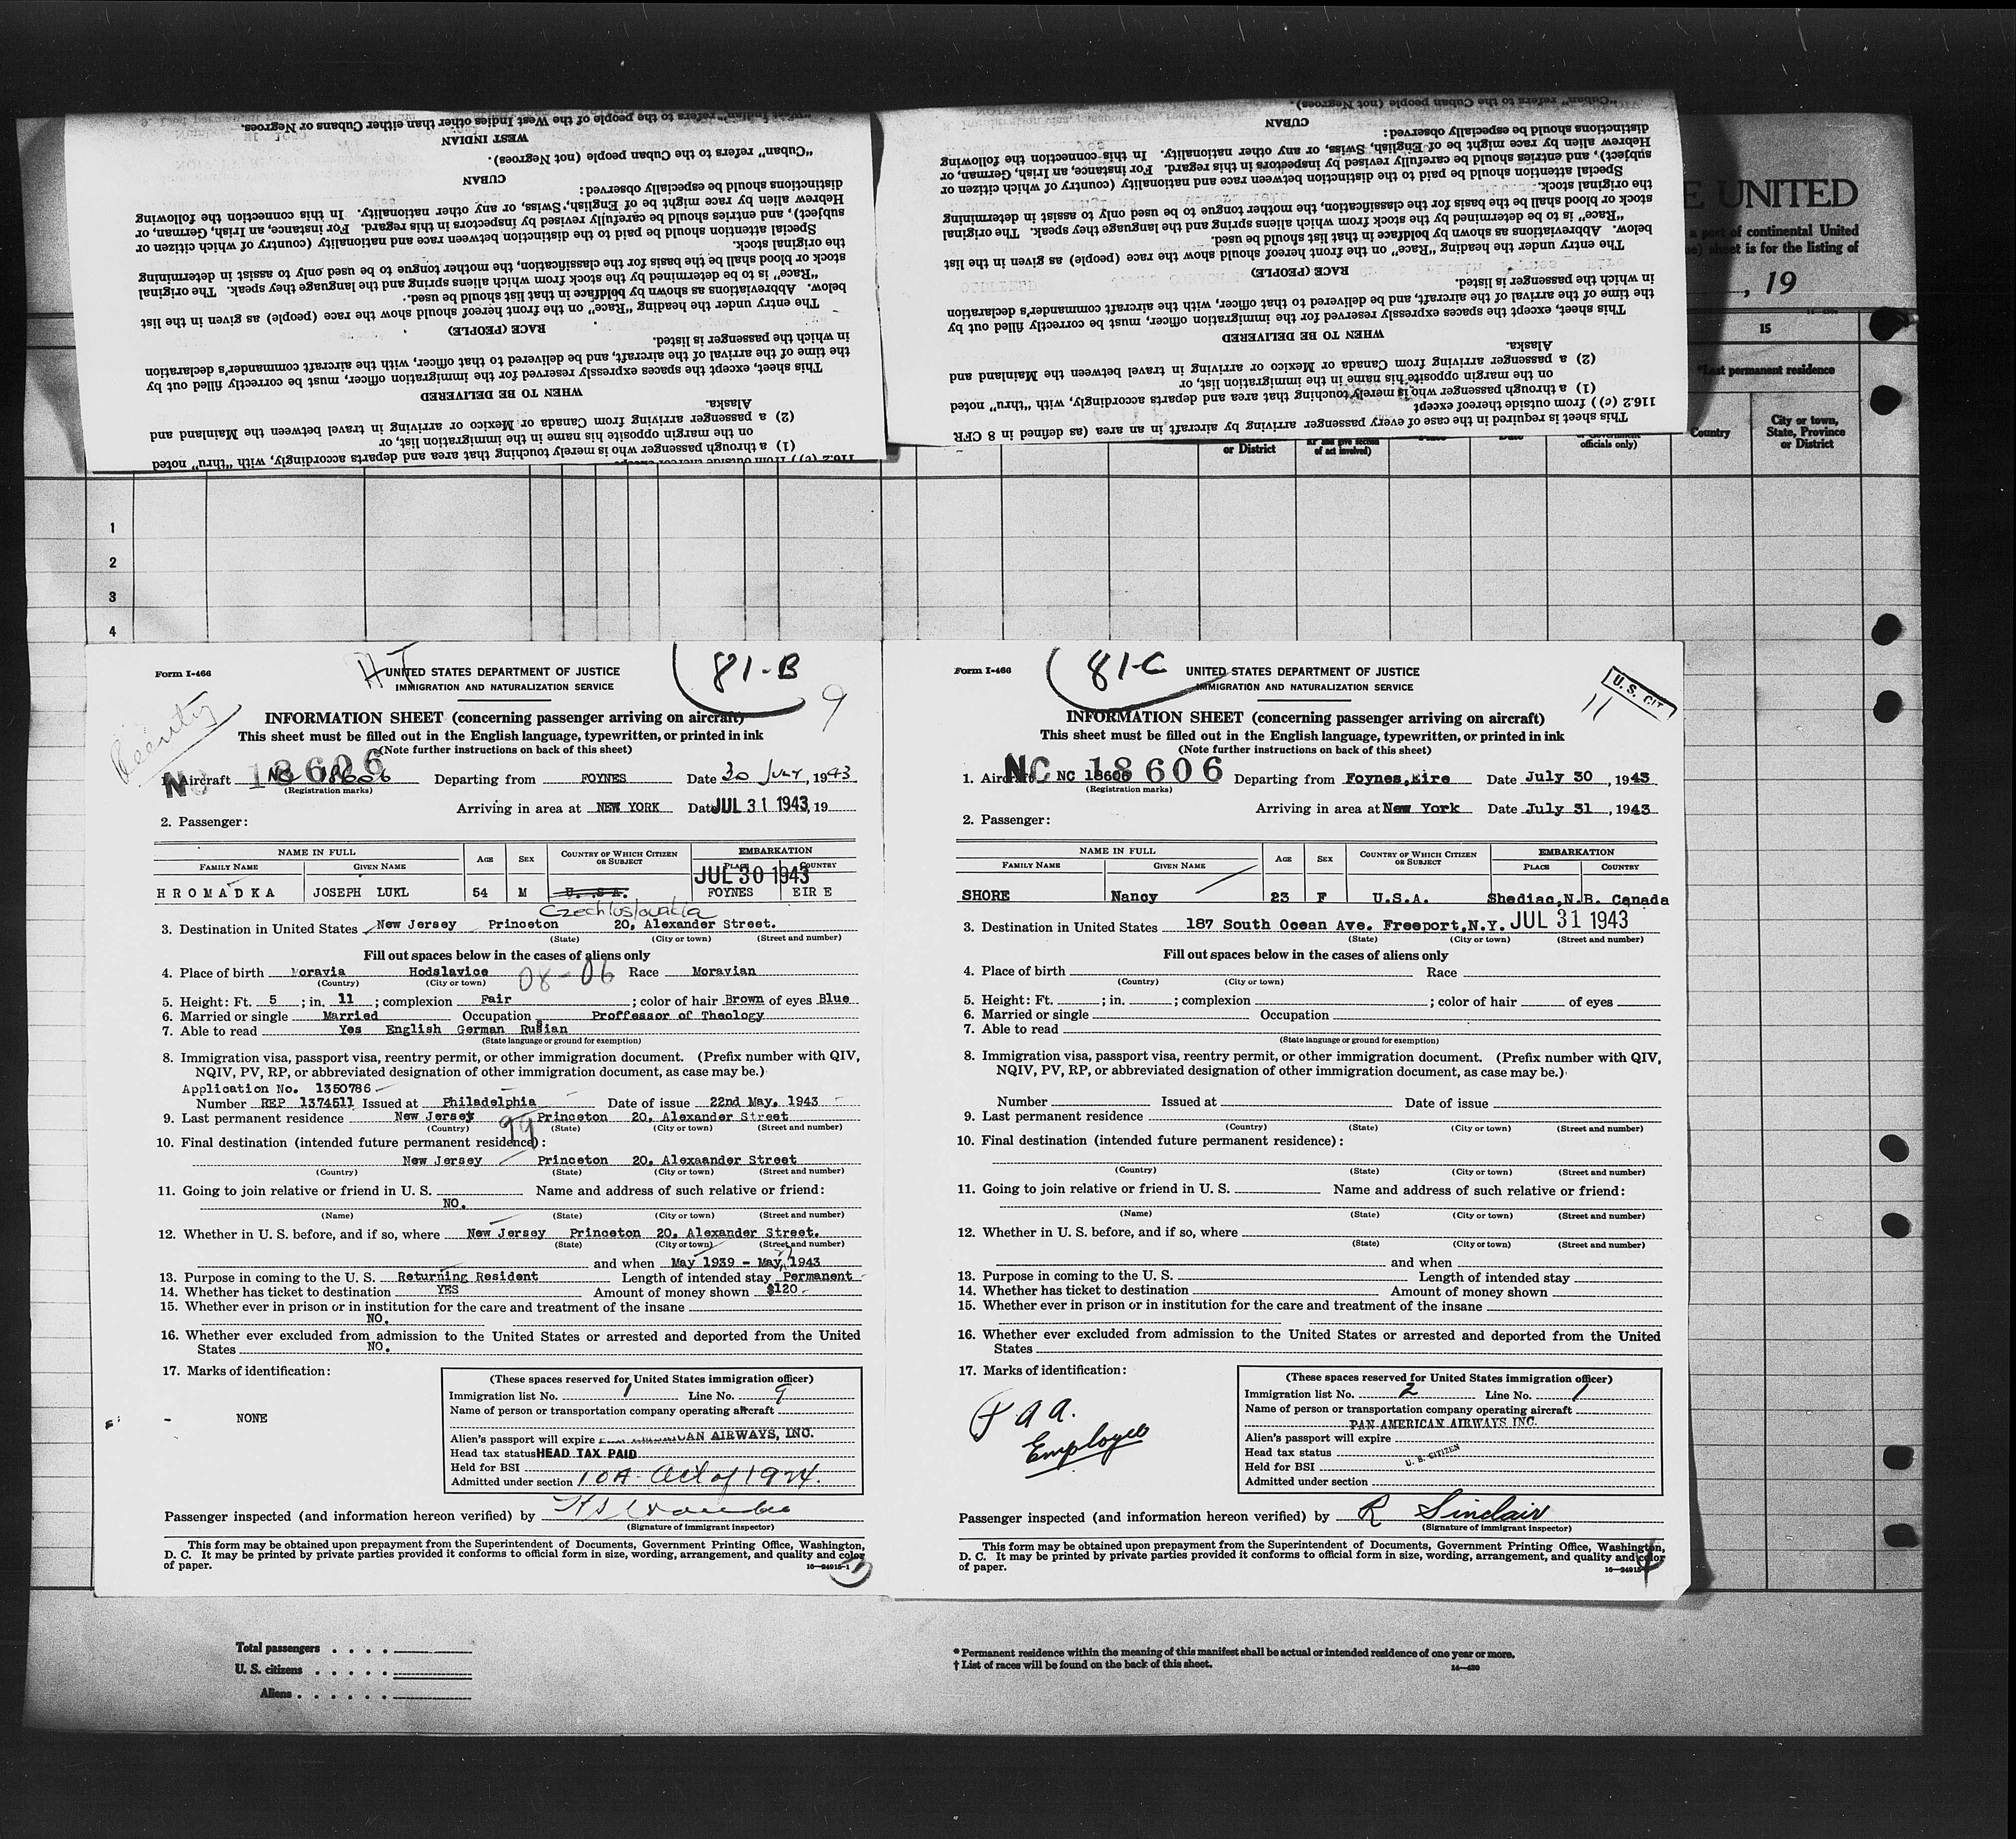 "West Indian" refers to the people of the West Indies other than either Cubans or Negroes.
WEST INDIAN
"Cuban" refers to the Cuban people (not Negroes).
CUBAN
distinctions should be especially observed:
Hebrew alien by race might be of English, Swiss, or any other nationality. In this connection the following
subject), and entries should be carefully revised by inspectors in this regard. For instance, an Irish, German, or
Special attention should be paid to the distinction between race and nationality (country of which citizen or
the original stock.
stock or blood shall be the basis for the classification, the mother tongue to be used only to assist in determining
"Race" is to be determined by the stock from which aliens spring and the language they speak. The original
below. Abbreviations as shown by boldface in that list should be used.
The entry under the heading "Race" on the front hereof should show the race (people) as given in the list
RACE (PEOPLE)
in which the passenger is listed.
the time of the arrival of the aircraft, and be delivered to that officer, with the aircraft commander's declaration
This sheet, except the spaces expressly reserved for the immigration officer, must be correctly filled out by
WHEN TO BE DELIVERED
Alaska.
(2) a passenger arriving from Canada or Mexico or arriving in travel between the Mainland and
on the margin opposite his name in the immigration list, or
(1) a through passenger who is merely touching that area and departs accordingly, with "thru" noted
116.2 (c)) from outside thereof except
"Cuban" refers to the Cuban people (not Negroes).
CUBAN
distinctions should be especially observed:
Hebrew alien by race might be of English, Swiss, or any other nationality. In this connection the following
subject), and entries should be carefully revised by inspectors in this regard. For instance, an Irish, German, or
Special attention should be paid to the distinction between race and nationality (country of which citizen or
the original stock.
stock or blood shall be the basis for the classification, the mother tongue to be used only to assist in determining
"Race" is to be determined by the stock from which aliens spring and the language they speak. The original
below. Abbreviations as shown by boldface in that list should be used.
The entry under the heading "Race" on the front hereof should show the race (people) as given in the list
RACE (PEOPLE)
in which the passenger is listed.
the time of the arrival of the aircraft, and be delivered to that officer, with the aircraft commander's declaration
This sheet, except the spaces expressly reserved for the immigration officer, must be correctly filled out by
WHEN TO BE DELIVERED
Alaska.
(2) a passenger arriving from Canada or Mexico or arriving in travel between the Mainland and
on the margin opposite his name in the immigration list, or
(1) a through passenger who is merely touching that area and departs accordingly, with "thru" noted
116.2 (c)) from outside thereof except
This sheet is required in the case of every passenger arriving by aircraft in an area (as defined in 8 CFR
E UNITED
a port of continental United
sheet is for the listing of
, 19
15
*Last permanent residence
Country
City or town, State, Province or District
or District
officials only)
1
2
3
4
Form I-466
HJ
81-B
9
Reentry
UNITED STATES DEPARTMENT OF JUSTICE
IMMIGRATION AND NATURALIZATION SERVICE
INFORMATION SHEET (concerning passenger arriving on aircraft)
This sheet must be filled out in the English language, typewritten, or printed in ink
(Note further instructions on back of this sheet)
NC 18606
1. Aircraft NC 18606 Departing from FOYNES Date 30 July, 1943
(Registration marks)
Arriving in area at NEW YORK Date JUL 31 1943, 19
2. Passenger:
NAME IN FULL AGE SEX COUNTRY OF WHICH CITIZEN OR SUBJECT EMBARKATION
FAMILY NAME GIVEN NAME PLACE COUNTRY
JUL 30 1943
HROMADKA JOSEPH LUKL 54 M U.S.A. FOYNES EIRE
Czechloslovakia
3. Destination in United States New Jersey Princeton 20, Alexander Street.
(State) (City or town) (Street and number)
Fill out spaces below in the cases of aliens only
4. Place of birth Moravia Hodslavice 08-06 Race Moravian
(Country) (City or town)
5. Height: Ft. 5; in. 11; complexion Fair; color of hair Brown of eyes Blue
6. Married or single Married Occupation Proffessor of Theology
7. Able to read Yes English German Rusian
(State language or ground for exemption)
8. Immigration visa, passport visa, reentry permit, or other immigration document. (Prefix number with QIV,
NQIV, PV, RP, or abbreviated designation of other immigration document, as case may be.)
Application No. 1350786
Number REP 1374511 Issued at Philadelphia Date of issue 22nd May. 1943
9. Last permanent residence New Jersey Princeton 20, Alexander Street
99
(Country) (State) (City or town) (Street and number)
10. Final destination (intended future permanent residence):
New Jersey Princeton 20, Alexaander Street
(Country) (State) (City or town) (Street and number)
11. Going to join relative or friend in U. S. Name and address of such relative or friend:
NO.
(Name) (State) (City or town) (Street and number)
12. Whether in U. S. before, and if so, where New Jersey Princeton 20, Alexander Street.
(State) (City or town) (Street and number)
and when May 1939 - May, 1943
13. Purpose in coming to the U. S. Returning Resident Length of intended stay Permanent
14. Whether has ticket to destination YES Amount of money shown $120.
15. Whether ever in prison or in institution for the care and treatment of the insane
NO.
16. Whether ever excluded from admission to the United States or arrested and deported from the United
States NO.
17. Marks of identification:
NONE
(These spaces reserved for United States immigration officer)
Immigration list No. 1 Line No. 9
Name of person or transportation company operating aircraft
Alien's passport will expire AN AIRWAYS, INC.
Head tax status HEAD TAX PAID
Held for BSI
Admitted under section 10A Act of 1924.
Passenger inspected (and information hereon verified) by
(Signature of immigrant inspector)
This form may be obtained upon prepayment from the Superintendent of Documents, Government Printing Office, Washington,
D. C. It may be printed by private parties provided it conforms to official form in size, wording, arrangement, and quality and color
of paper.
16—24915-1
Form I-466
81-C
11
U. S. CIT.
UNITED STATES DEPARTMENT OF JUSTICE
IMMIGRATION AND NATURALIZATION SERVICE
INFORMATION SHEET (concerning passenger arriving on aircraft)
This sheet must be filled out in the English language, typewritten, or printed in ink
(Note further instructions on back of this sheet)
NC 18606
1. Aircraft NC 18606 Departing from Foynes,Eire Date July 30, 1943
(Registration marks)
Arriving in area at New York Date July 31, 1943
2. Passenger:
NAME IN FULL AGE SEX COUNTRY OF WHICH CITIZEN OR SUBJECT EMBARKATION
FAMILY NAME GIVEN NAME PLACE COUNTRY
SHORE Nancy 23 F U.S.A. Shediac,N.B. Canada
3. Destination in United States 187 South Ocean Ave. Freeport,N.Y. JUL 31 1943
(State) (City or town) (Street and number)
Fill out spaces below in the cases of aliens only
4. Place of birth Race
(Country) (City or town)
5. Height: Ft. ; in. ; complexion ; color of hair of eyes
6. Married or single Occupation
7. Able to read
(State language or ground for exemption)
8. Immigration visa, passport visa, reentry permit, or other immigration document. (Prefix number with QIV,
NQIV, PV, RP, or abbreviated designation of other immigration document, as case may be.)
Number Issued at Date of issue
9. Last permanent residence
(Country) (State) (City or town) (Street and number)
10. Final destination (intended future permanent residence):
(Country) (State) (City or town) (Street and number)
11. Going to join relative or friend in U. S. Name and address of such relative or friend:
(Name) (State) (City or town) (Street and number)
12. Whether in U. S. before, and if so, where
(State) (City or town) (Street and number)
and when
13. Purpose in coming to the U. S. Length of intended stay
14. Whether has ticket to destination Amount of money shown
15. Whether ever in prison or in institution for the care and treatment of the insane
16. Whether ever excluded from admission to the United States or arrested and deported from the United
States
17. Marks of identification:
P a a.
Employee
(These spaces reserved for United States immigration officer)
Immigration list No. 2 Line No. 1
Name of person or transportation company operating aircraft
PAN AMERICAN AIRWAYS INC.
Alien's passport will expire
Head tax status
U. S. CITIZEN
Held for BSI
Admitted under section
Passenger inspected (and information hereon verified) by R Sinclair
(Signature of immigrant inspector)
This form may be obtained upon prepayment from the Superintendent of Documents, Government Printing Office, Washington,
D. C. It may be printed by private parties provided it conforms to official form in size, wording, arrangement, and quality and color
of paper.
16—24915
Total passengers
U. S. citizens
Aliens
* Permanent residence within the meaning of this manifest shall be actual or intended residence of one year or more.
† List of races will be found on the back of this sheet.